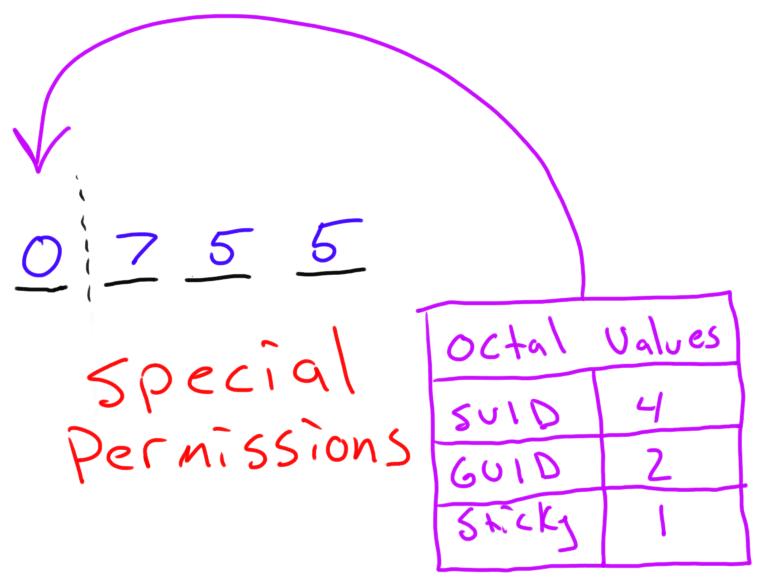 0 7 5 5
special
Permissions
Octal Values
SUID 4
GUID 2
Sticky 1